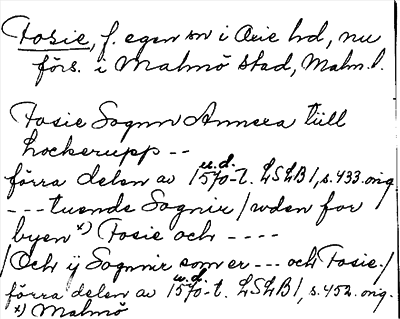 Fosie, f. egen sn i Oxie hd, nu
förs. i Malmö stad, Malm. l.
Fosie Sognn Annexa tiill
Lockerupp --
u.d.
förra delen av 1570-t. LSLB 1, s. 433. orig
--- tuende Sognir / uden for
byen x) Fosie och ----
/ Och ij Sognnir som er --- och Fosie. /
u.d.
förra delen av 1570-t. LSLB 1, s. 452. orig.
x) Malmö